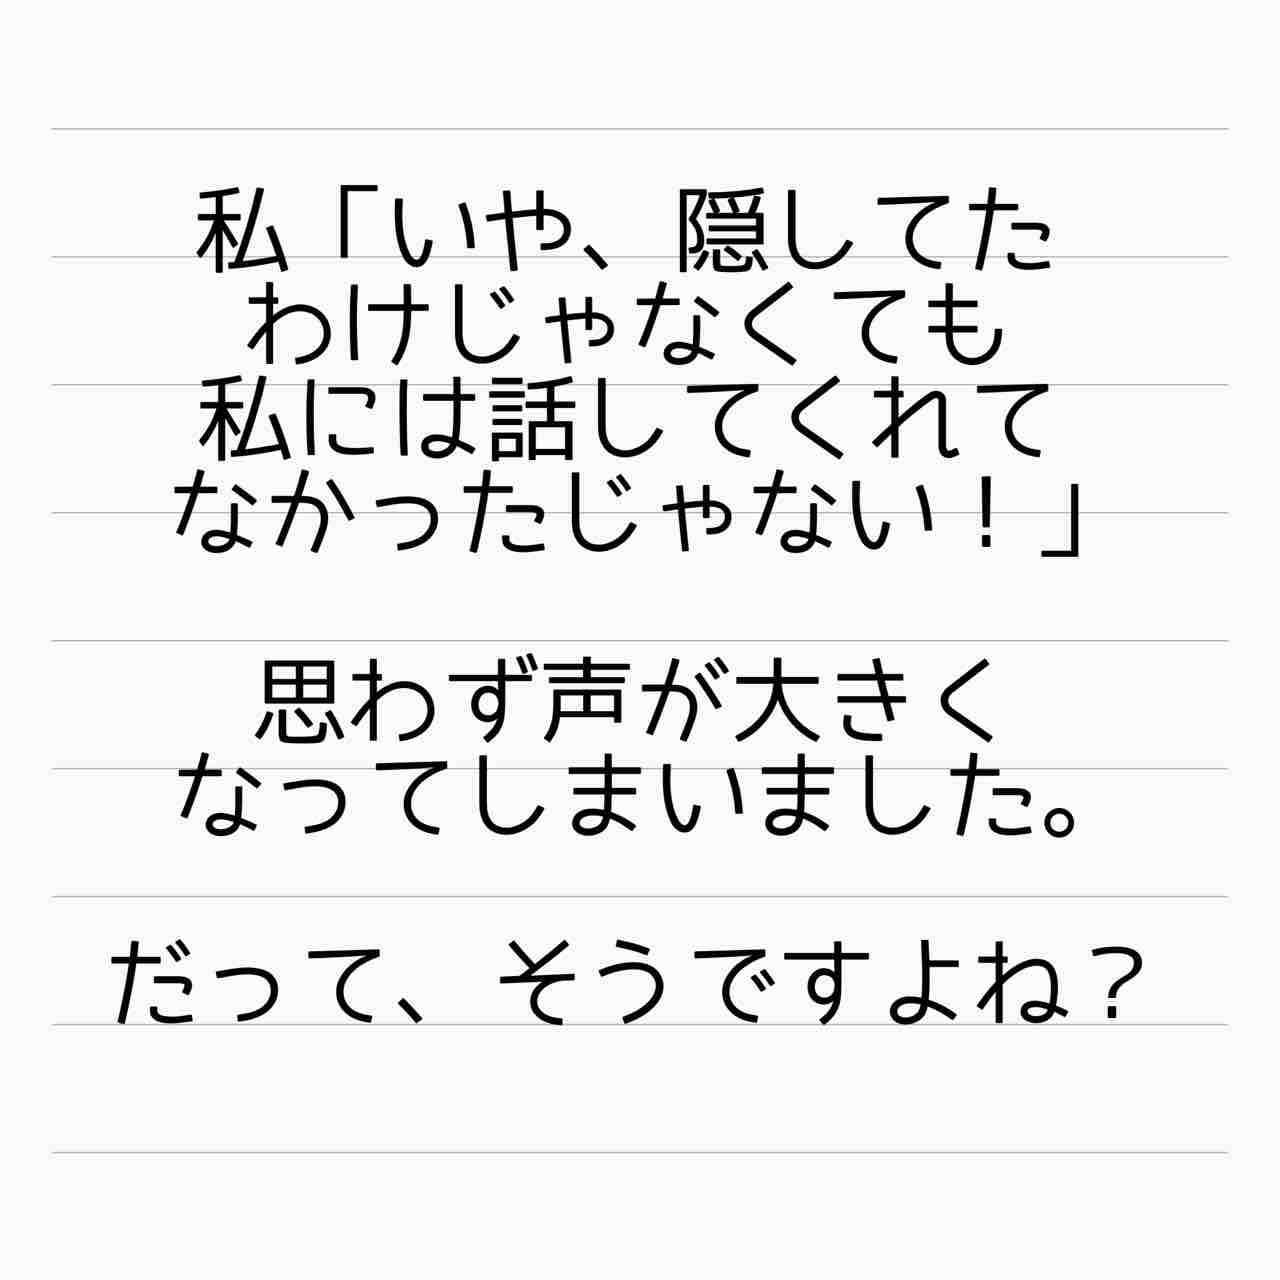 私「いや、隠してた
わけじゃなくても
私には話してくれて
なかったじゃない！」
思わず声が大きく
なってしまいました。
だって、そうですよね？